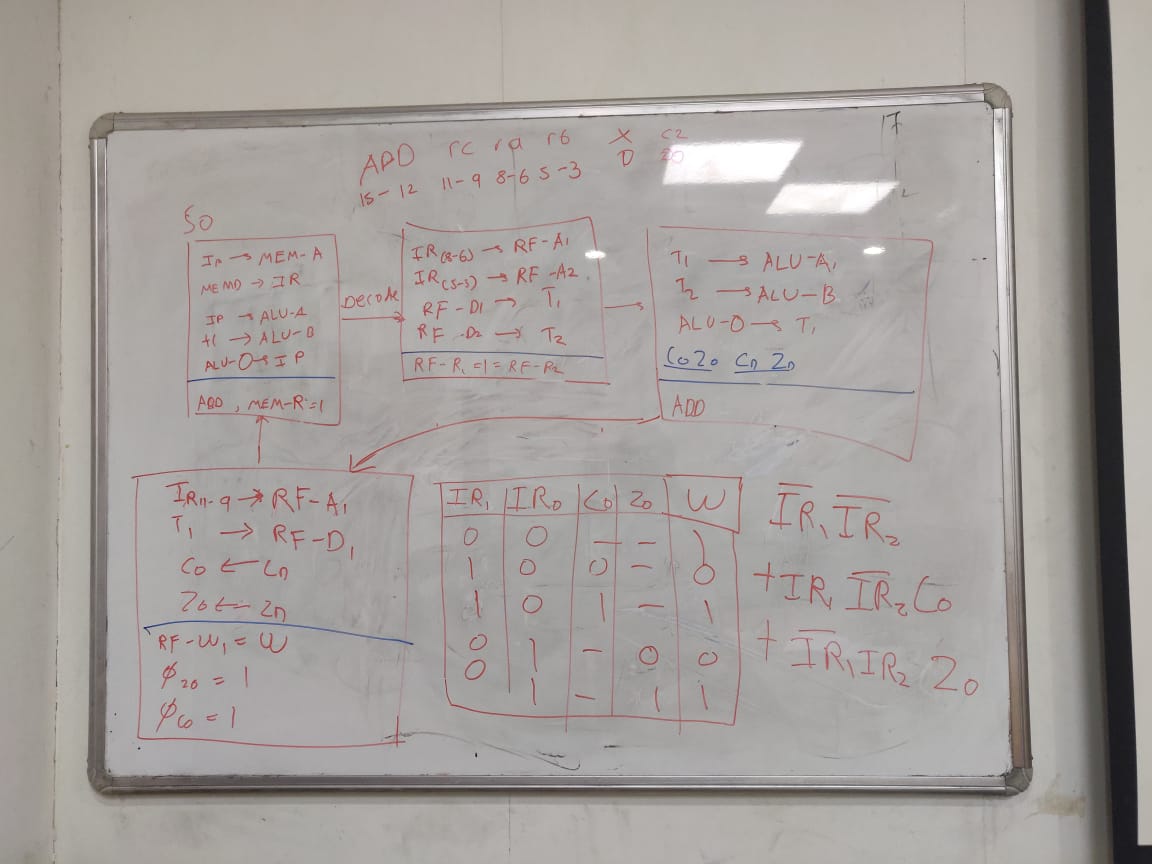 ADD rc ra rb X CZ
15-12 11-9 8-6 5-3 0
S0
IP → MEM-A
MEMD → IR
IP → ALU-A
+1 → ALU-B
ALU-O → IP
ADD, MEM-R=1
Decode
IR(8-6) → RF-A1
IR(5-3) → RF-A2
RF-D1 → T1
RF-D2 → T2
RF-R1 =1= RF-R2
T1 → ALU-A,
T2 → ALU-B
ALU-O → T1
C0Z0 Cn Zn
ADD
IR11-9 → RF-A1
T1 → RF-D1
C0 ← Cn
Z0 ← Zn
RF-W1 = W
φZ0 = 1
φC0 = 1
IR1 IR0 C0 Z0 W
0 0 – – 1
1 0 0 – 0
1 0 1 – 1
0 1 – 0 0
0 1 – 1 1
I̅R̅1 I̅R̅2
+ IR1 I̅R̅2 C0
+ I̅R̅1 IR2 Z0